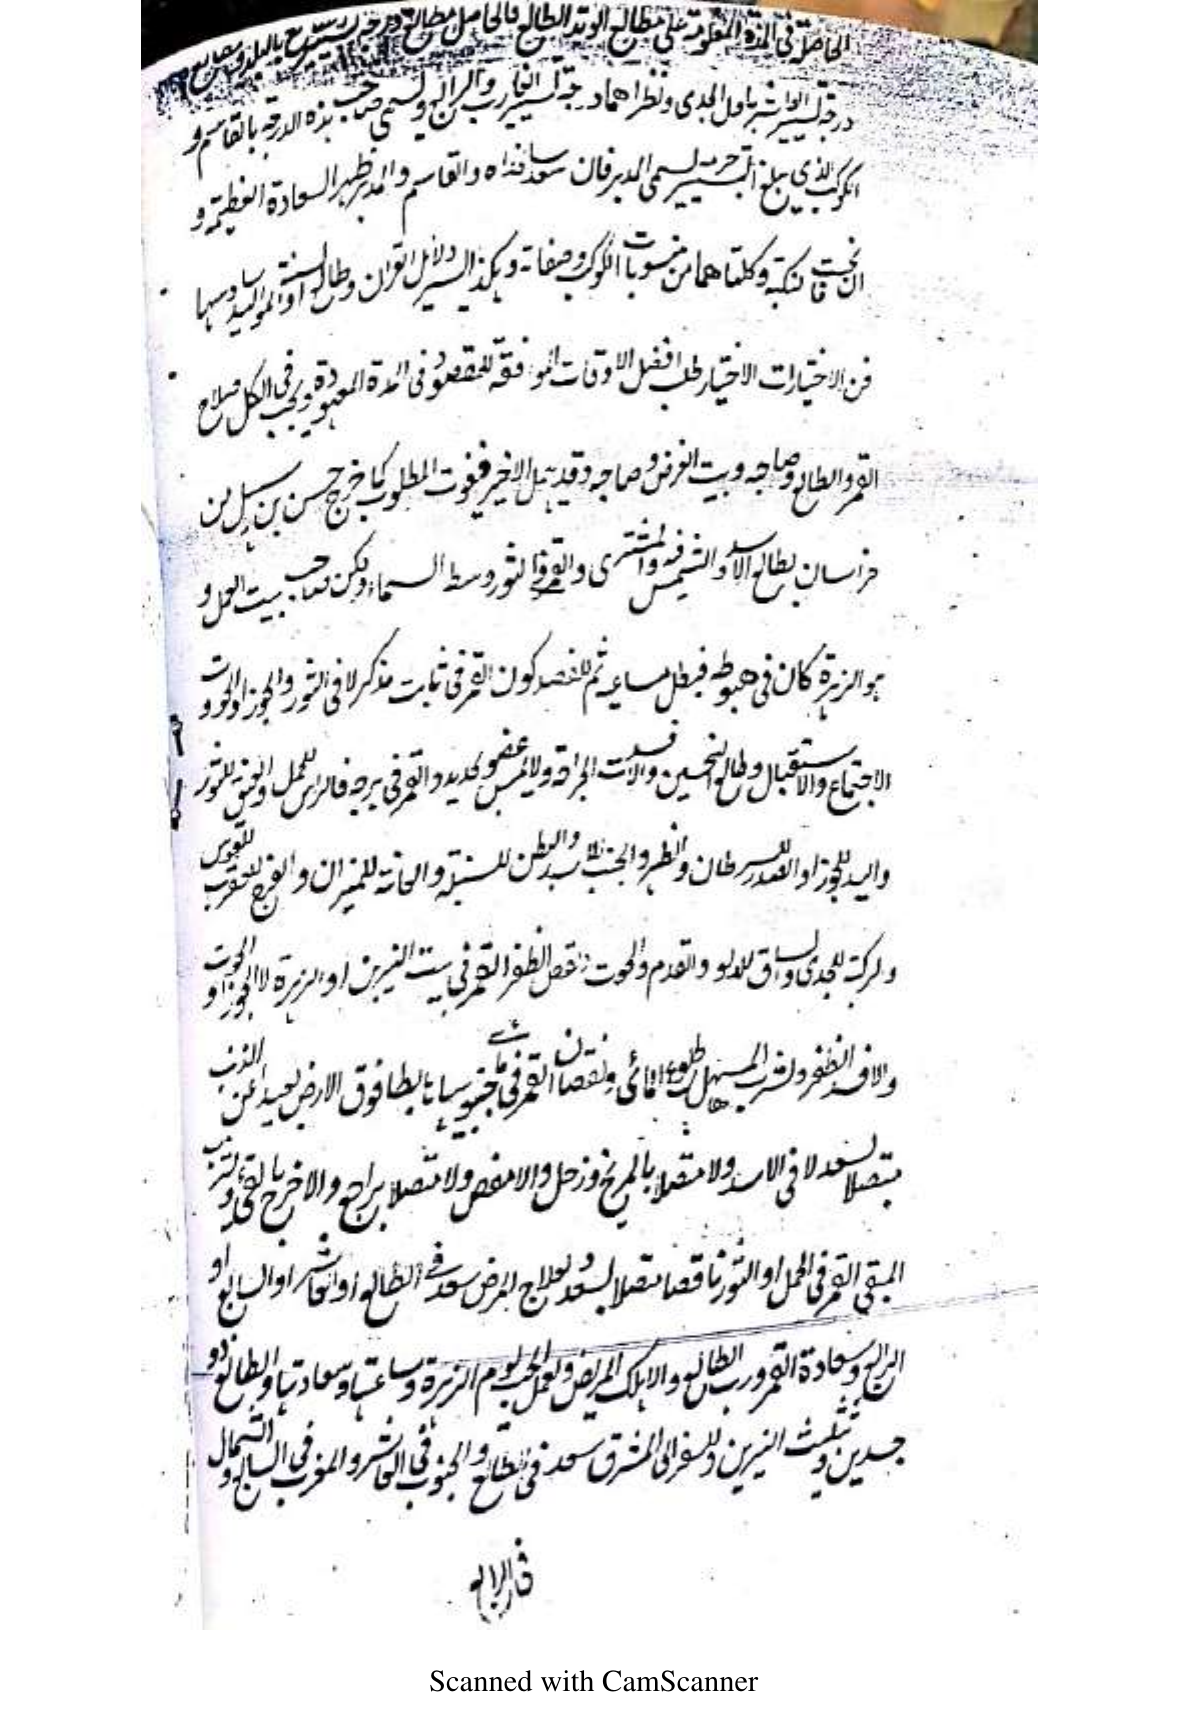 الحاصلة فى المدة المعلومة على مطالع الوتد الطالع فالحاصل مطالع درجة
درجة تسيير العاشر باول الجدى ونظراهما درجة تسيير الغارب والرابع ويسمى صاحب هذه الدرجة بالقاسم و
الكوكب الذى يبلغ التسيير جرمه يسمى المدبر فان سعد القاسم والمدبر ظهر السعادة العظيمة و
ان نحست فالنكبة وكلتاهما من منسوبات الكوكب وصفاته وهكذا تسير دلائل القران وطالع السنة او المواليد سادسها
فن الاختيارات الاختيار طلب افضل الاوقات الموافقة للمقصود فى المدة المعهودة ويجب فى الكل صلاح
القمر والطالع وصاحبه وبيت الغرض وصاحبه وقد يهمل الاخير فيفوت المطلوب كما خرج حسن بن سهل من
خراسان بطالع الاسد والشمس فيه والمشترى والقمر فى الثور وسط السماء ولكن صاحب بيت العمل و
هو الزهرة كان فى هبوطه فبطل مساعيه ثم للفصد كون القمر فى ثابت مذكر لا فى الثور والجوزا والحوت
الاجتماع والاستقبال وطالع النحسين والات الجراحة ولا يمس عضو بحديد والقمر فى برجه فالراس للحمل والعنق للثور
واليد للجوزا والصدر للسرطان والظهر والجنب للاسد والبطن للسنبلة والعانة للميزان والفرج للعقرب للقوس
والركبة للجدى والساق للدلو والقدم والحوت لقص الظفر القمر فى بيت النيرين او الزهرة لا الجوزا و الحوت
والا فسد الظفر ولشرب المسهل طلوع المائى ونقصان القمر فى جنوبيا هابطا فوق الارض بعيدا عن الذنب
متصلا بسعد لا فى الاسد ولا متصلا بالمريخ وزحل والا مغص ولا متصلا براجع والا خرج بالقى ولشرب
المقى القمر فى الحمل او الثور ناقصا متصلا بسعد ولعلاج المرض سعد فى الطالع او العاشر او السابع او
الرابع وسعادة القمر ورب الطالع والا هلك المريض ولعمل الحب يوم الزهرة وساعتها وسعادتها والطالع ذو
جسدين وتثليث النيرين وللسفر الى المشرق سعد فى الطالع والجنوب فى العاشر والمغرب فى السابع والشمال
فى الرابع
Scanned with CamScanner